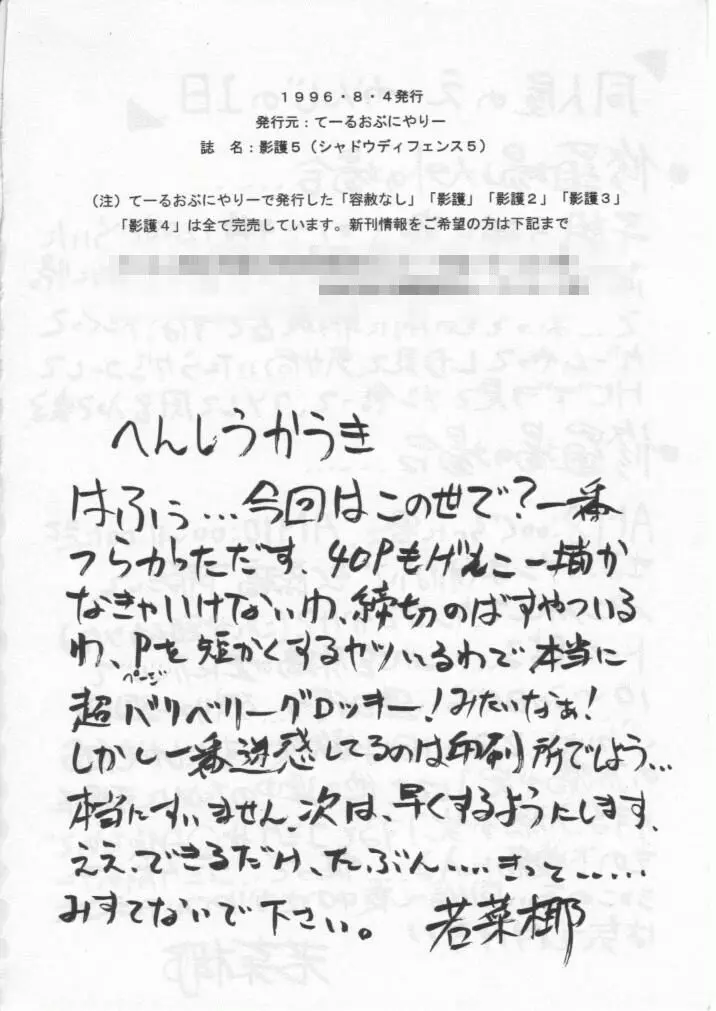 1996・8・4発行
発行元：てーるおぶにやりー
誌　名：影護5（シャドウディフェンス5）
（注）てーるおぶにやりーで発行した「容赦なし」「影護」「影護2」「影護3」
「影護4」は全て完売しています。新刊情報をご希望の方は下記まで
へんしうかうき
はふぅ…今回はこの世で？一番
つらかっただす、40Pもげんこー描か
なきゃいけないわ、締切のばすやついる
わ、Pを短かくするヤツいるわで本当に
ページ
超ベリベリーグロッキー！みたいなぁ！
しかし一番迷惑してるのは印刷所でしよう…
本当にすいません。次は、早くするようにします、
ええ、できるだけ、たぶん……きって……
みすてないで下さい。 若菜椰